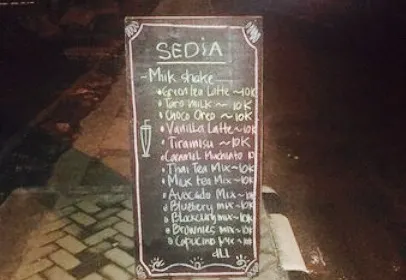 SEDIA
- Milk shake
• Green tea Latte ~ 10K
• Taro milk ~ 10K
• Choco Oreo ~ 10K
• Vanilla Latte ~ 10K
• Tiramisu ~ 10K
• Caramel Machiato 10
• Thai Tea Mix ~ 10K
• Milk tea Mix ~ 10K
• Avocado Mix ~ 10K
• Blueberry mix ~ 10K
• Blackcurry mix ~ 10K
• Brownies mix ~ 10K
• Capucino ~ 10K
dLL